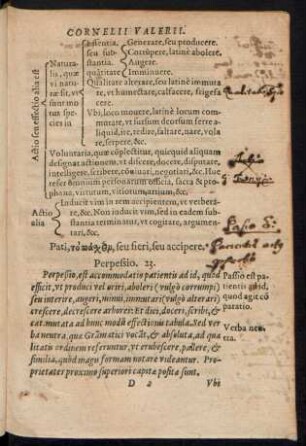 CORNELII VALERII.
Essentia. Generare, seu producere.
seu sub- Corrũpere, latinè abolere.
stantia. Augere.
quãtitate Imminuere.
Actio seu effectio alia est
Natura-
lia, quæ
vi natu-
ræ fit, vt
sunt mo-
tus spe-
cies in
Qualitate alterare, seu latinè immuta-
re, vt humectare, calfacere, frigefa
cere.
Vbi, loco mouere, latinè locum com-
mutare, vt sursum deorsum ferre a-
liquid, ire, redire, saltare, nare, vola
re, serpere, &c.
Voluntaria, quæ cõplectitur, quicquid aliquam
designat actionem, vt discere, docere, disputare,
intelligere, scribere, conuiuari, negotiari, &c. Huc
referes omnium personarum officia, sacra & pro-
phana, virtutum, vitiorumq́; actiones.
Actio
alia
Inducit vim in rem accipientem, vt verbera-
re, &c. Non inducit vim, sed in eadem sub-
stantia terminatur, vt cogitare, argumen-
tari, &c.
Pati, seu fieri, seu accipere.
Perpessio. 23.
Perpessio, est accommodatio patientis ad id, quod
efficit, vt produci vel oriri, aboleri (vulgò corrumpi)
seu interire, augeri, minui, immutari (vulgò alterari)
crescere, decrescere arborem: Et dici, doceri, scribi, &
cat. mutata ad hunc modũ effectionis tabula. Sed ver
ba neutra, quæ Grãmatici vocãt, & absoluta, ad qua
litatũ ordinem referuntur, vt erubescere, pallere, &
similia, quibus magis formam notare videantur. Pro-
prietates proximo superiori capite posita sunt.
Passio est pa-
tientis ad id,
quod agit cõ
paratio.
Verba neu-
tra.
D 2 Vbi